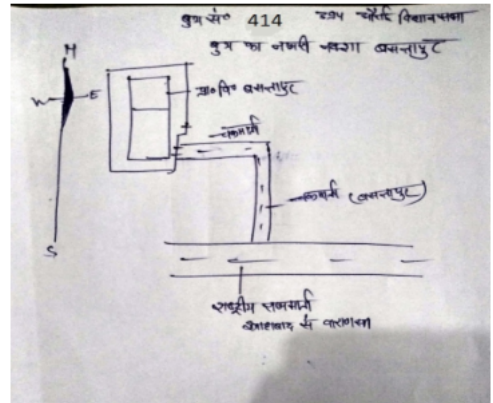 बुथ सं० 414 394 औराई विधानसभा
बुथ का नजरी नक्शा बसन्तापुर
N
W E
प्रा० वि० बसन्तापुर
चकमार्ग
चकमार्ग (बसन्तापुर)
S
राष्ट्रीय राजमार्ग
इलाहाबाद से वाराणसी